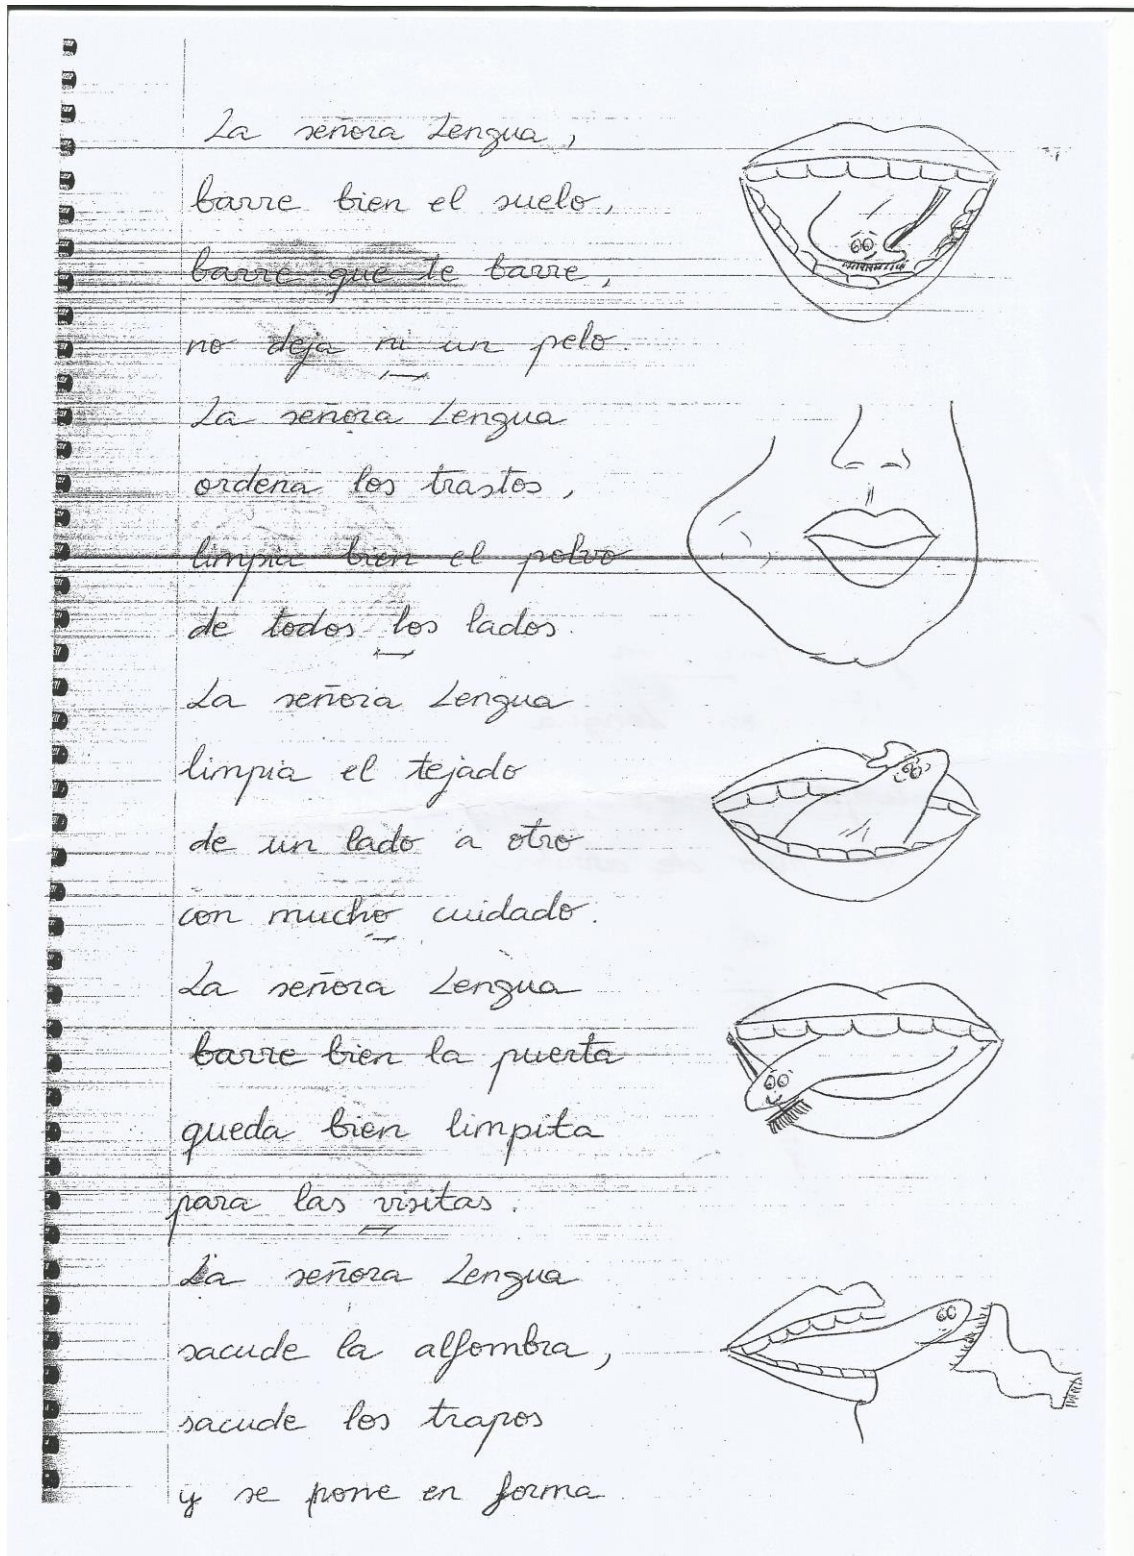 La señora Lengua,
barre bien el suelo,
barre que te barre,
no deja ni un pelo.
La señora Lengua
ordena los trastos,
limpia bien el polvo
de todos los lados.
La señora Lengua
limpia el tejado
de un lado a otro
con mucho cuidado.
La señora Lengua
barre bien la puerta
queda bien limpita
para las visitas.
La señora Lengua
sacude la alfombra,
sacude los trapos
y se pone en forma